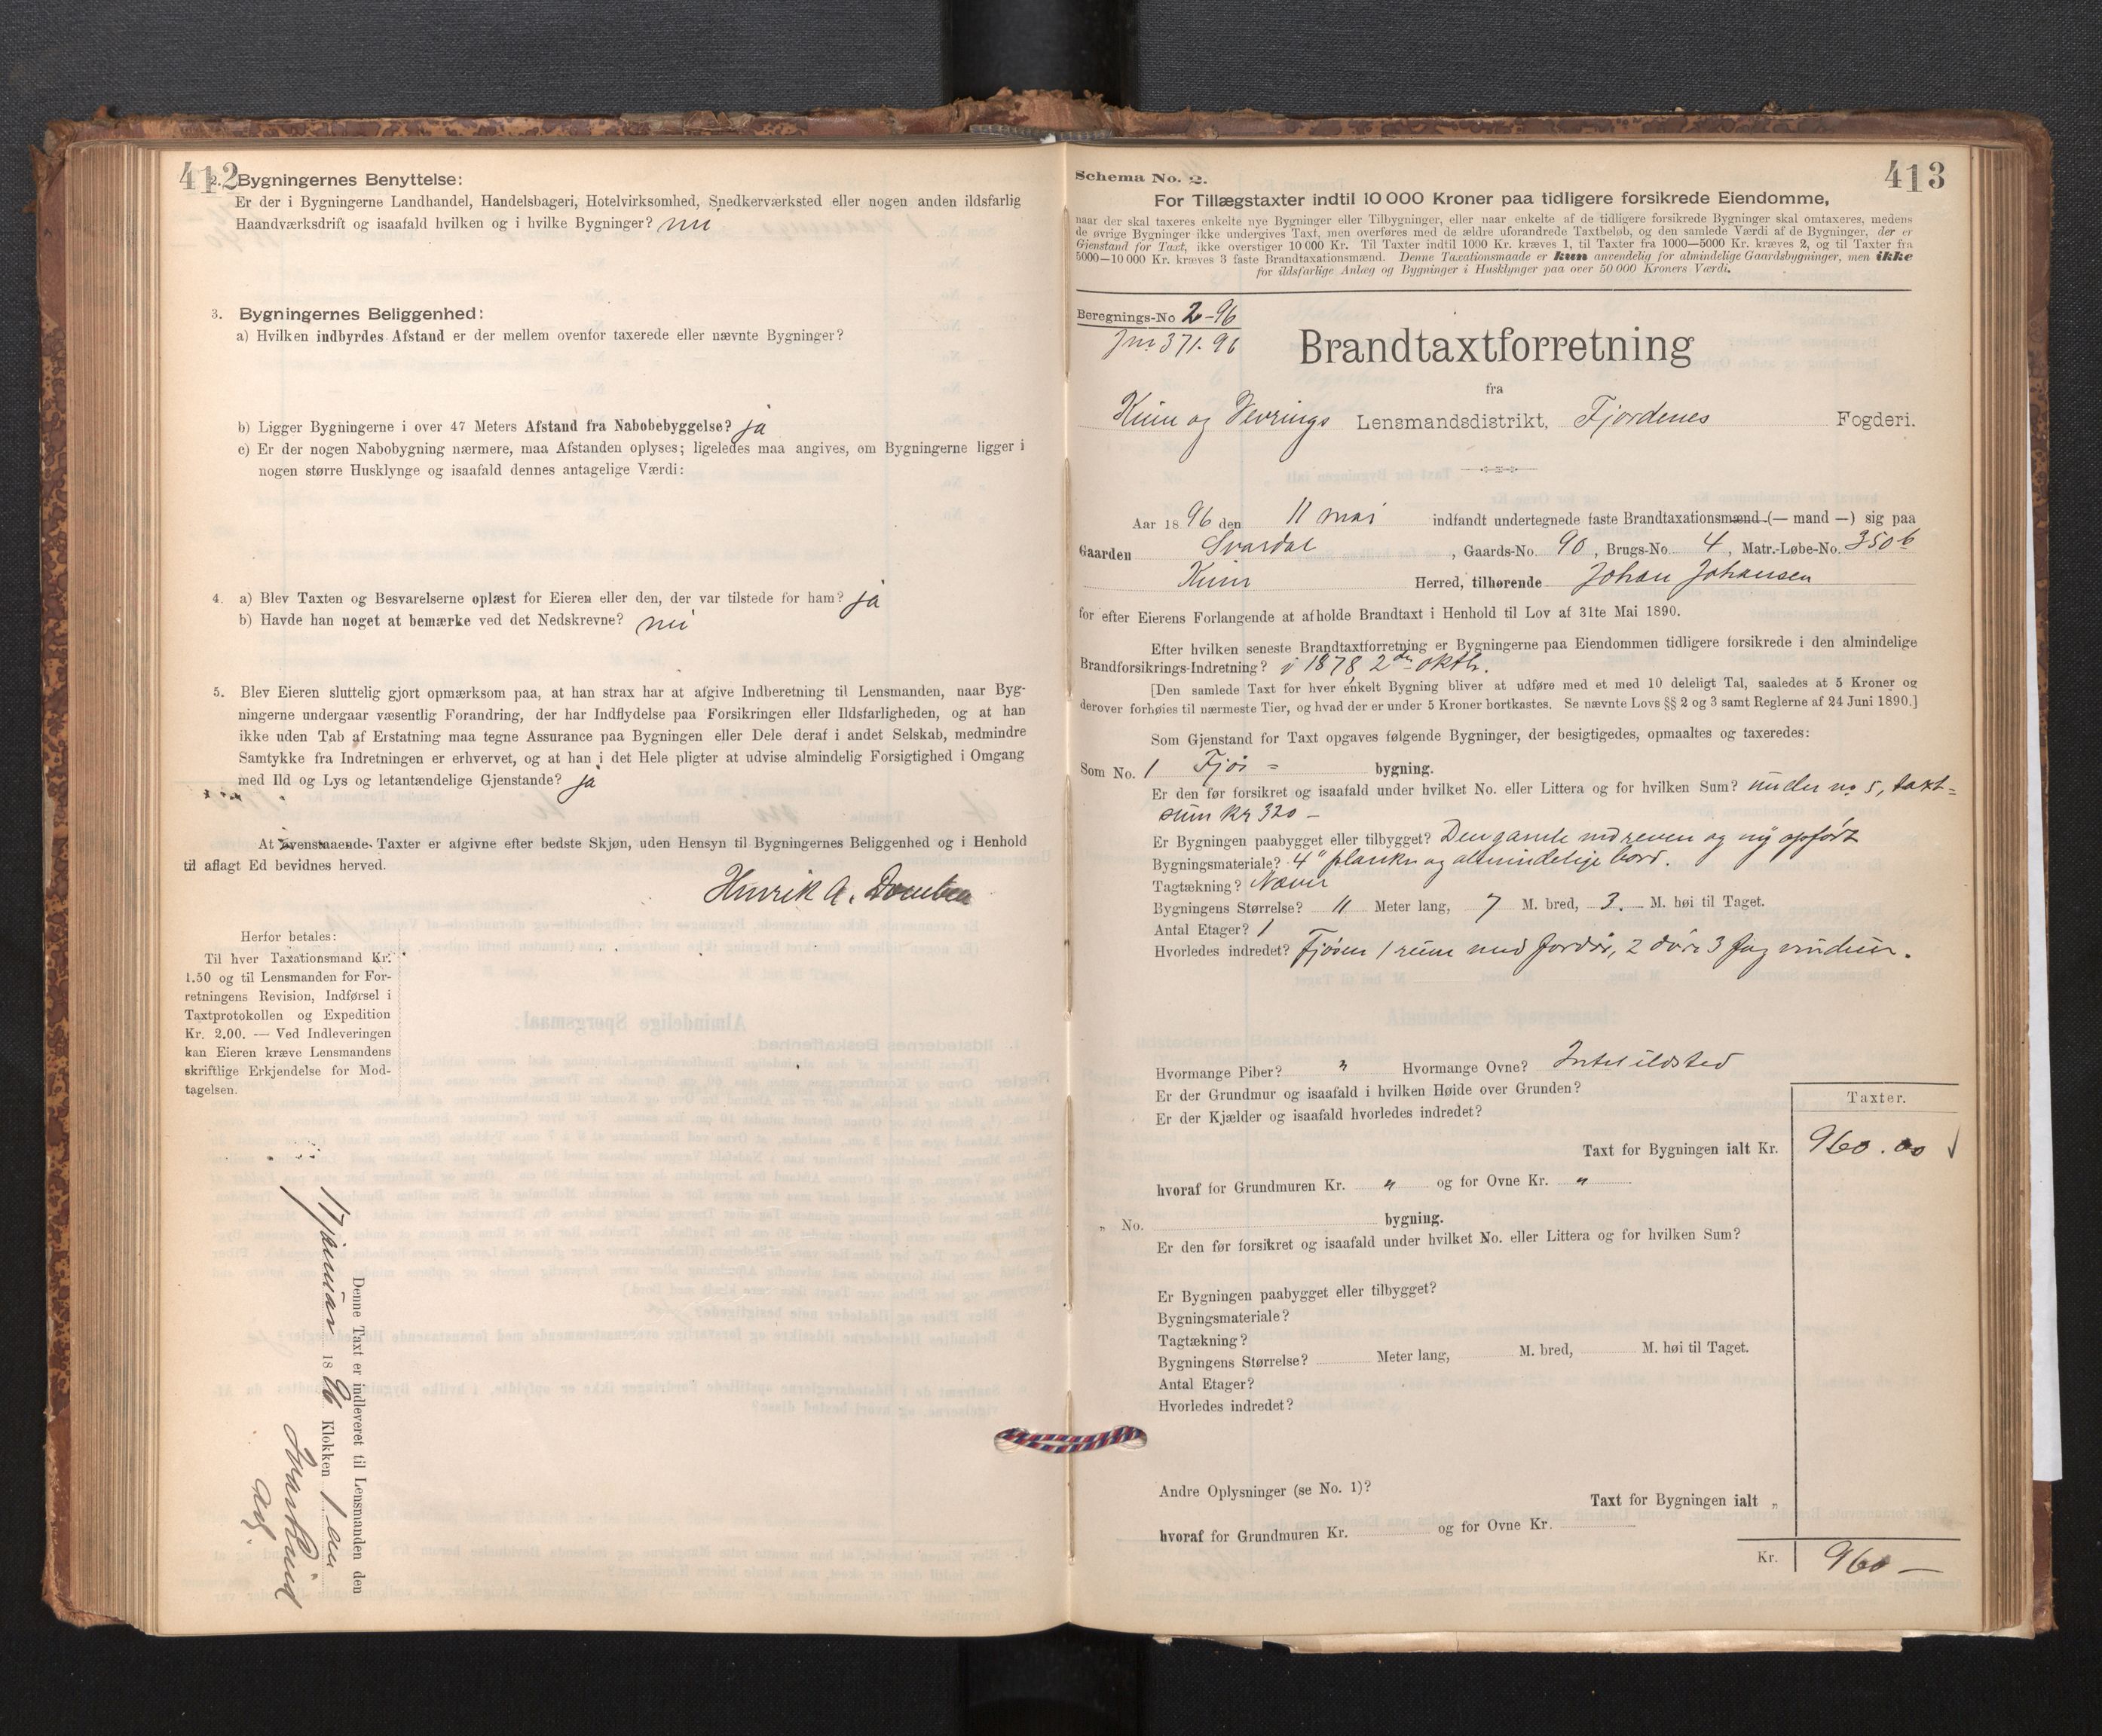 412
2. Bygningernes Benyttelse:
Er der i Bygningerne Landhandel, Handelsbageri, Hotelvirksomhed, Snedkerværksted eller nogen anden ildsfarlig
Haandværksdrift og isaafald hvilken og i hvilke Bygninger? nei
3. Bygningernes Beliggenhed:
a) Hvilken indbyrdes Afstand er der mellem ovenfor taxerede eller nævnte Bygninger?
b) Ligger Bygningerne i over 47 Meters Afstand fra Nabobebyggelse? ja
c) Er der nogen Nabobygning nærmere, maa Afstanden oplyses; ligeledes maa angives, om Bygningerne ligger i
nogen større Husklynge og isaafald dennes antagelige Værdi:
4. a) Blev Taxten og Besvarelserne oplæst for Eieren eller den, der var tilstede for ham? ja
b) Havde han noget at bemærke ved det Nedskrevne? nei
5. Blev Eieren sluttelig gjort opmærksom paa, at han strax har at afgive Indberetning til Lensmanden, naar Byg-
ningerne undergaar væsentlig Forandring, der har Indflydelse paa Forsikringen eller Ildsfarligheden, og at han
ikke uden Tab af Erstatning maa tegne Assurance paa Bygningen eller Dele deraf i andet Selskab, medmindre
Samtykke fra Indretningen er erhvervet, og at han i det Hele pligter at udvise almindelig Forsigtighed i Omgang
med Ild og Lys og letantændelige Gjenstande? ja
At ovenstaaende Taxter er afgivne efter bedste Skjøn, uden Hensyn til Bygningernes Beliggenhed og i Henhold
til aflagt Ed bevidnes herved.
Henrik A.
Herfor betales:
Til hver Taxationsmand Kr.
1.50 og til Lensmanden for For-
retningens Revision, Indførsel i
Taxtprotokollen og Expedition
Kr. 2.00. — Ved Indleveringen
kan Eieren kræve Lensmandens
skriftlige Erkjendelse for Mod-
tagelsen.
Denne Taxt er indleveret til Lensmanden den
17 januar 1896 Klokken 1 em
413
Schema No. 2.
For Tillægstaxter indtil 10 000 Kroner paa tidligere forsikrede Eiendomme,
naar der skal taxeres enkelte nye Bygninger eller Tilbygninger, eller naar enkelte af de tidligere forsikrede Bygninger skal omtaxeres, medens
de øvrige Bygninger ikke undergives Taxt, men overføres med de ældre uforandrede Taxtbeløb, og den samlede Værdi af de Bygninger, der er
Gjenstand for Taxt, ikke overstiger 10 000 Kr. Til Taxter indtil 1000 Kr. kræves 1, til Taxter fra 1000—5000 Kr. kræves 2, og til Taxter fra
5000—10 000 Kr. kræves 3 faste Brandtaxationsmænd. Denne Taxationsmaade er kun anvendelig for almindelige Gaardsbygninger, men ikke
for ildsfarlige Anlæg og Bygninger i Husklynger paa over 50 000 Kroners Værdi.
Beregnings-No 2-96
Jnr 371.96
Brandtaxtforretning
fra
Kinn og Vevrings Lensmandsdistrikt, Fjordenes Fogderi.
Aar 1896 den 11 mai indfandt undertegnede faste Brandtaxationsmænd (— mand —) sig paa
Gaarden Svardal, Gaards-No. 90, Brugs-No. 4, Matr.-Løbe-No. 350 b
Kinn Herred, tilhørende Johan Johansen
for efter Eierens Forlangende at afholde Brandtaxt i Henhold til Lov af 31te Mai 1890.
Efter hvilken seneste Brandtaxtforretning er Bygningerne paa Eiendommen tidligere forsikrede i den almindelige
Brandforsikrings-Indretning? i 1878 2den oktbr.
[Den samlede Taxt for hver enkelt Bygning bliver at udføre med et med 10 deleligt Tal, saaledes at 5 Kroner og
derover forhøies til nærmeste Tier, og hvad der er under 5 Kroner bortkastes. Se nævnte Lovs §§ 2 og 3 samt Reglerne af 24 Juni 1890.]
Som Gjenstand for Taxt opgaves følgende Bygninger, der besigtigedes, opmaaltes og taxeredes:
Som No. 1 Fjøs = bygning.
Er den før forsikret og isaafald under hvilket No. eller Littera og for hvilken Sum? under no 5, taxt=
sum kr 320 —
Er Bygningen paabygget eller tilbygget? Den gamle nedreven og ny opført
Bygningsmateriale? 4" planker og almindelige bord.
Tagtækning? Næver
Bygningens Størrelse? 11 Meter lang, 7 M. bred, 3. M. høi til Taget.
Antal Etager? 1
Hvorledes indredet? Fjøsen 1 rum med fordør, 2 døre 3 fag vinduer.
Hvormange Piber? " Hvormange Ovne? Intet ildsted
Er der Grundmur og isaafald i hvilken Høide over Grunden?
Er der Kjælder og isaafald hvorledes indredet?
Taxter.
Taxt for Bygningen ialt Kr. 960.00
hvoraf for Grundmuren Kr. " og for Ovne Kr. "
„ No. bygning.
Er den før forsikret og isaafald under hvilket No. eller Littera og for hvilken Sum?
Er Bygningen paabygget eller tilbygget?
Bygningsmateriale?
Tagtækning?
Bygningens Størrelse? Meter lang, M. bred, M. høi til Taget.
Antal Etager?
Hvorledes indredet?
Andre Oplysninger (se No. 1)?
Taxt for Bygningen ialt „
hvoraf for Grundmuren Kr. og for Ovne Kr.
Kr. 960 —